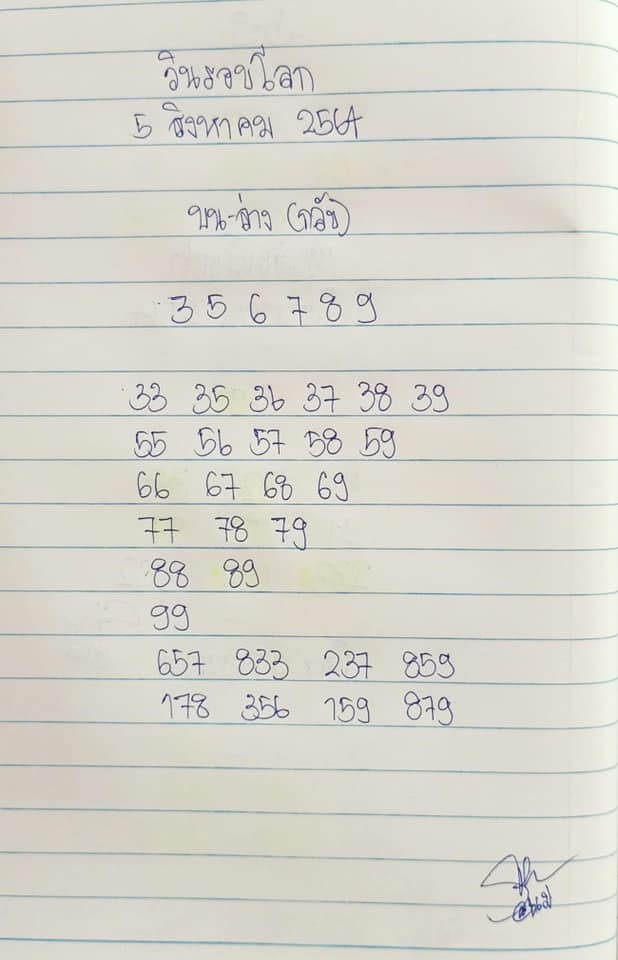 วินรอบโลก
5 สิงหาคม 2564
บน-ล่าง
3 5 6 7 8 9
33 35 36 37 38 39
55 56 57 58 59
66 67 68 69
77 78 79
88 89
99
657 833 237 859
178 356 159 879